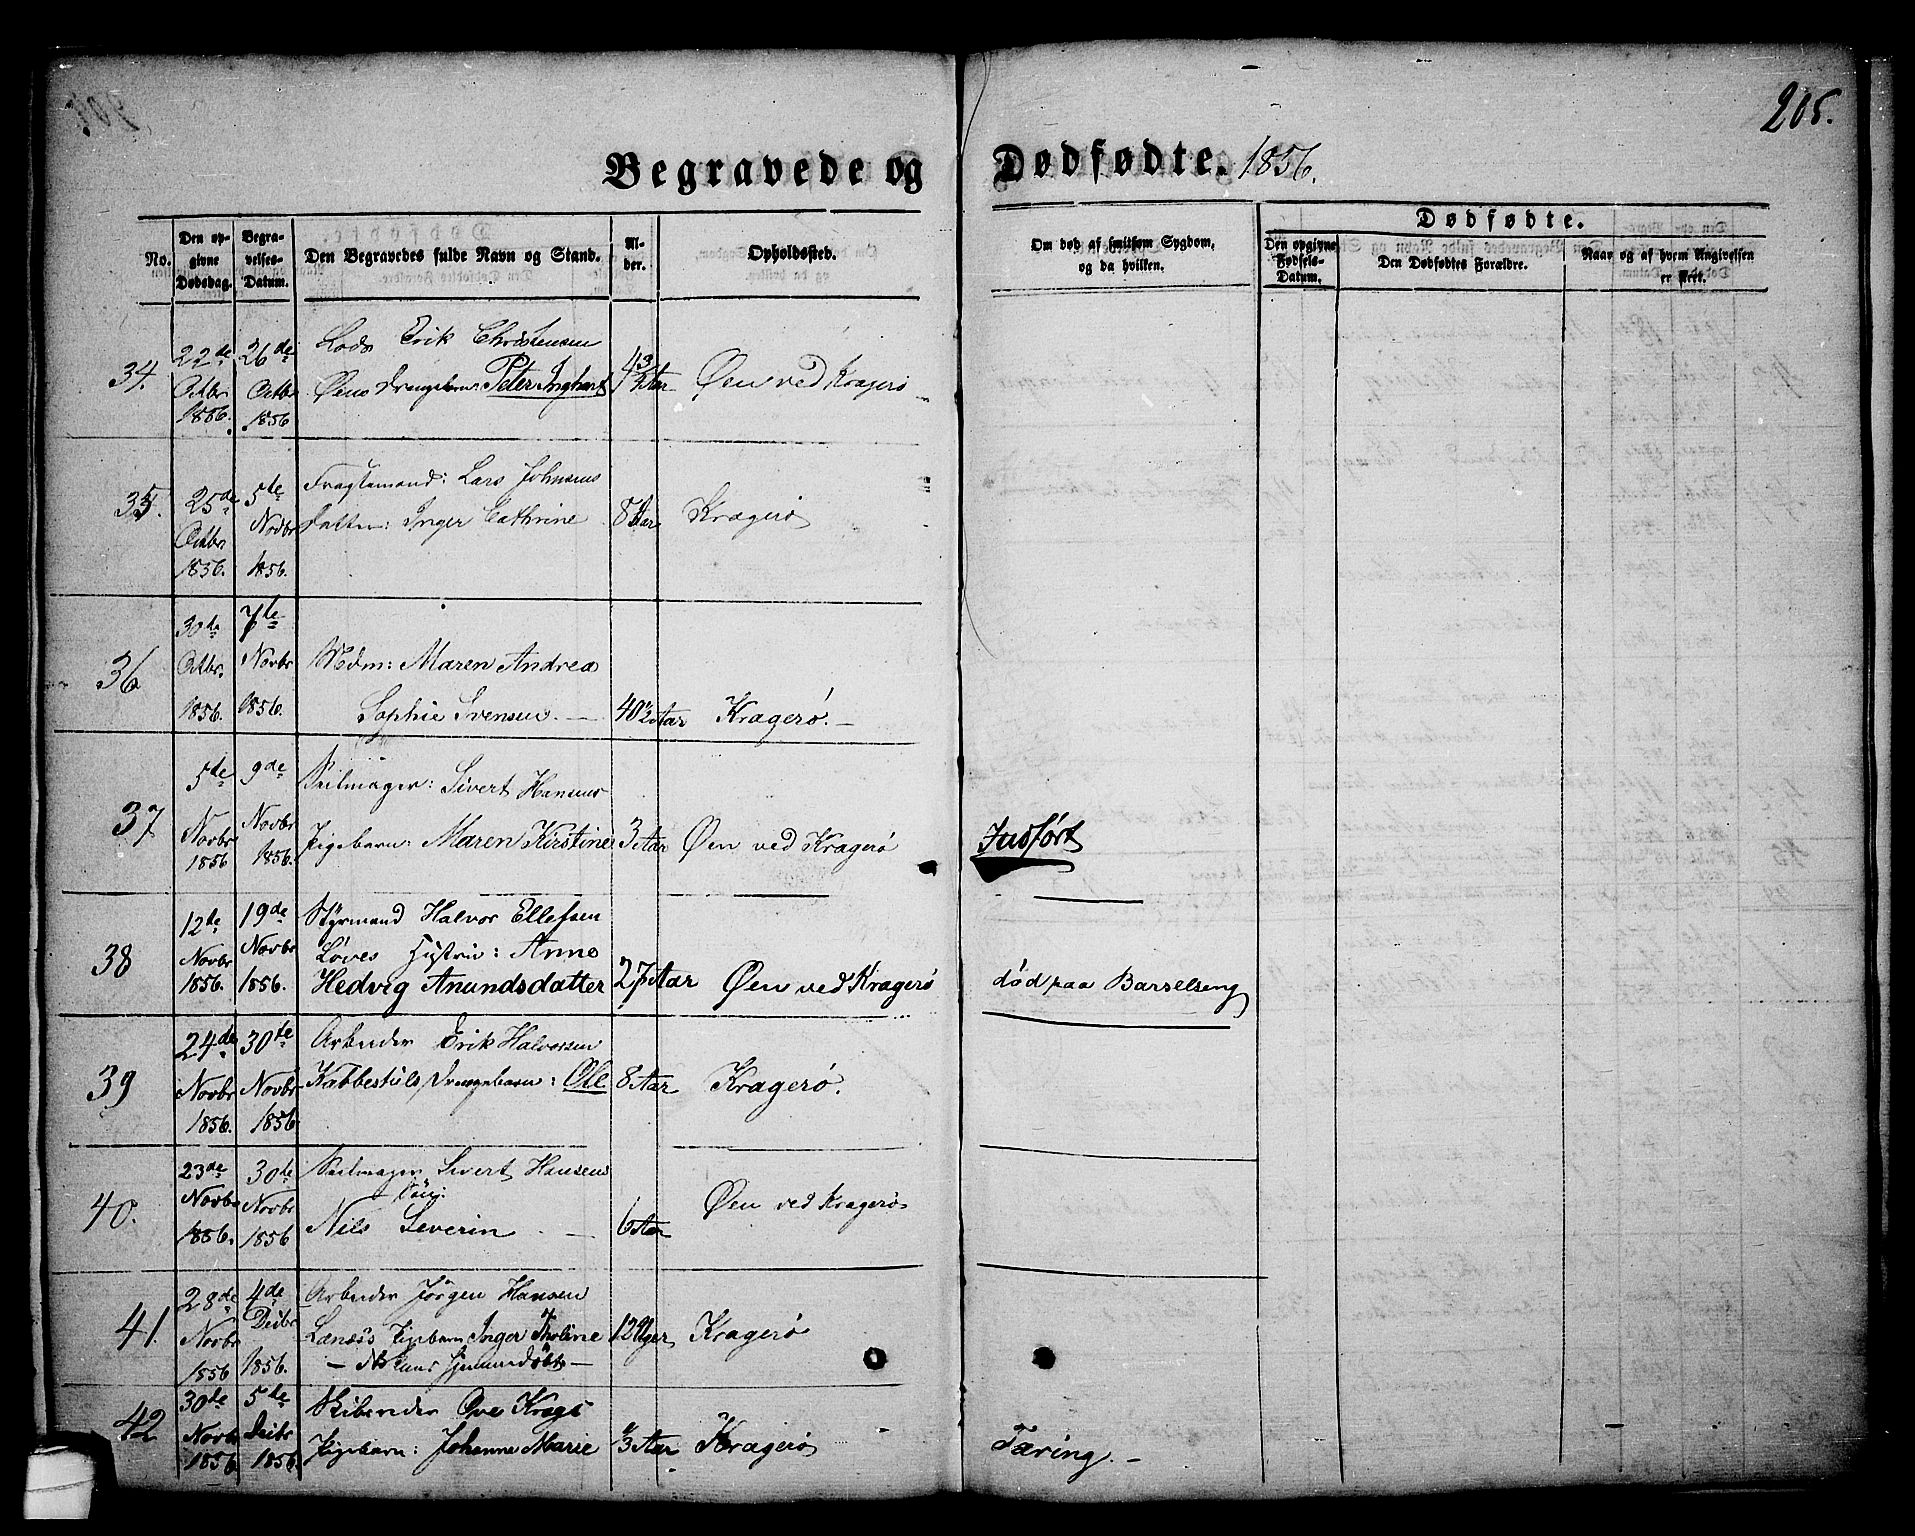 205.
Begravede og Dødfødte. 1856.
No.
Den opgivne Dødsdag.
Begravelses-Datum.
Den Begravedes fulde Navn og Stand.
Alder.
Opholdssted.
Om død af smitsom Sygdom, og da hvilken.
Dødfødte.
Den opgivne Fødsels-Datum.
Den Dødfødtes Forældre.
Naar og af hvem Angivelsen er skeet.
34.
22de Octbr 1856.
26de Octbr 1856
Lods Erik Christensen
Øens Drengebarn: Peter Inghart
Aar
Øen ved Kragerø
35.
25de Octbr 1856.
5te Novbr 1856.
Fragtemand: Lars Johnsens
Datter: Inger Cathrine
8 Aar
Kragerø
36
30de Octbr. 1856.
7de Novbr 1856.
Madm: Maren Andrea
Sophie Svensen. —
40½ Aar
Kragerø. —
37
5te Novbr 1856
9de Novbr 1856.
Seilmager: Sivert Hansens
Pigebarn: Maren Kirstine
3 Aar
Øen ved Kragerø
Indført
38
12te Novbr 1856.
19de Novbr 1856.
Styrmand Halvor Ellefsen
Løves Hustru: Anne
Hedvig Anundsdatter
27 Aar
Øen ved Kragerø
død paa Barselseng
39
24de Novbr 1856.
30te Novbr 1856.
Arbeider Erik Halvorsen
Kabbestuls Drengebarn: Ole
8 Aar
Kragerø.
40.
23de Novbr 1856.
30te Novbr 1856
Seilmager Sivert Hansens
Søn:
Nils Severin —
6 Aar
Øen ved Kragerø
41.
28de Novbr 1856
4de Decbr 1856.
Arbeider Jørgen Hansen
Lanæss Pigebarn Inger Tholine
— hjemmedøbt —
12 Uger
Kragerø
42
30de Novbr 1856
5te Decbr 1856.
Ove Krags
Pigebarn: Johanne Marie
Aar
Kragerø
Tæring. —